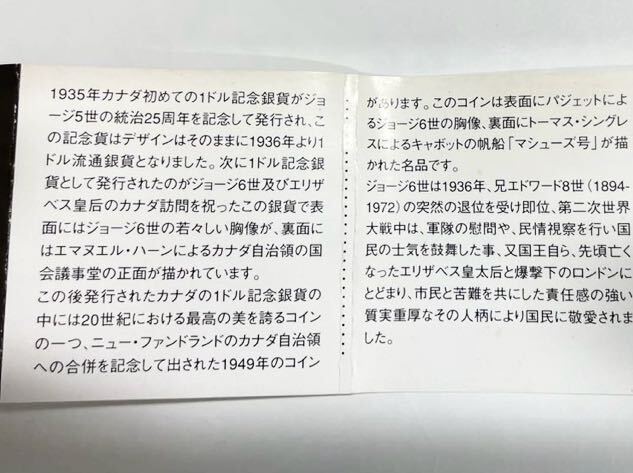 1935年カナダ初めての1ドル記念銀貨がジョ
ージ5世の統治25周年を記念して発行され、こ
の記念貨はデザインはそのままに1936年より1
ドル流通銀貨となりました。次に1ドル記念銀
貨として発行されたのがジョージ6世及びエリザ
ベス皇后のカナダ訪問を祝ったこの銀貨で表
面にはジョージ6世の若々しい胸像が、裏面に
はエマヌエル・ハーンによるカナダ自治領の国
会議事堂の正面が描かれています。
この後発行されたカナダの1ドル記念銀貨の
中には20世紀における最高の美を誇るコイン
の一つ、ニュー・ファンドランドのカナダ自治領
への合併を記念して出された1949年のコイン
があります。このコインは表面にパジェットによ
るジョージ6世の胸像、裏面にトーマス・シングレ
スによるキャボットの帆船「マシューズ号」が描
かれた名品です。
ジョージ6世は1936年、兄エドワード8世(1894-
1972)の突然の退位を受け即位、第二次世界
大戦中は、軍隊の慰問や、民情視察を行い国
民の士気を鼓舞した事、又国王自ら、先頃亡く
なったエリザベス皇太后と爆撃下のロンドンに
とどまり、市民と苦難を共にした責任感の強い
質実重厚なその人柄により国民に敬愛されま
した。